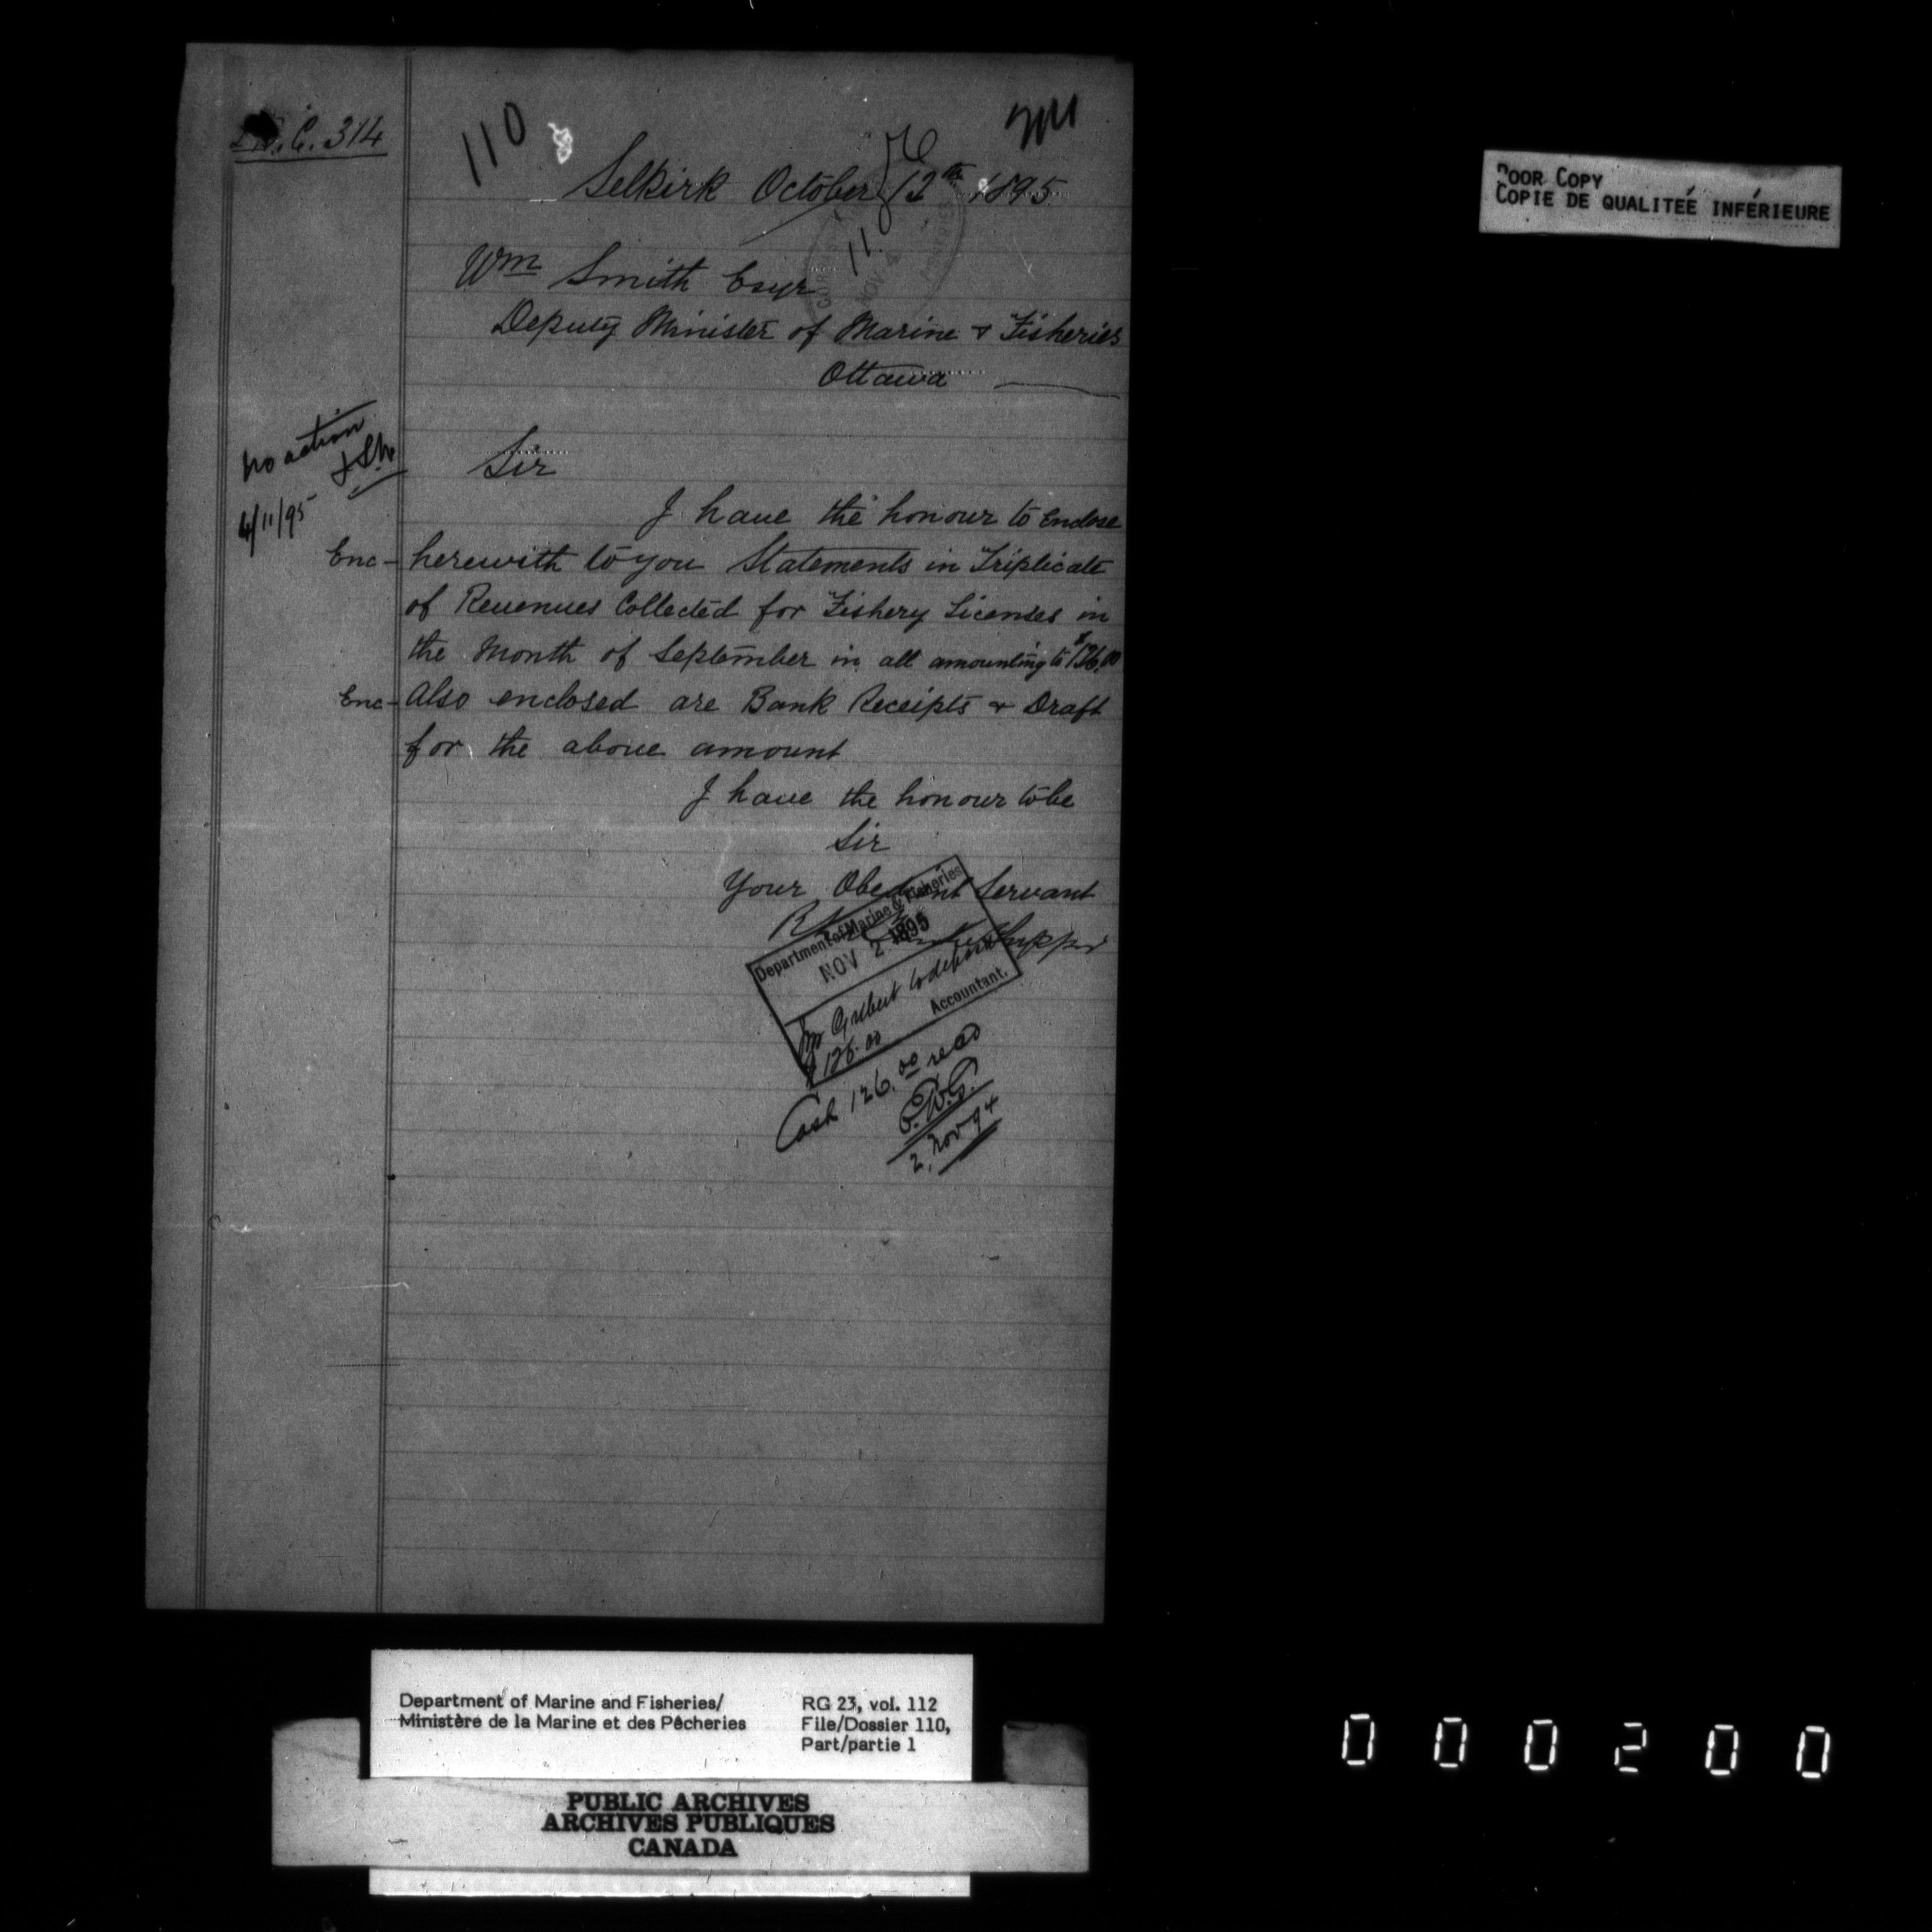 C. 314
110
Selkirk October 12th 1895
110
NOV
Wm Smith Esqr
Deputy Minister of Marine & Fisheries
Ottawa
No action
4/11/95
Sir
I have the honour to Enclose
Enc - herewith to you Statements in Triplicate
of Revenues Collected for Fishery Licenses in
the Month of September in all amounting to $126.00
Enc - Also enclosed are Bank Receipts & Draft
for the above amount
I have the honour to be
Sir
Your Obedient Servant
Department of Marine & Fisheries
NOV 2 1895
to deposit
$126.00
Accountant.
Cash 126.00 recd
2, Nov 94
POOR COPY
COPIE DE QUALITÉE INFÉRIEURE
Department of Marine and Fisheries/
Ministère de la Marine et des Pêcheries
RG 23, vol. 112
File/Dossier 110,
Part/partie 1
PUBLIC ARCHIVES
ARCHIVES PUBLIQUES
CANADA
000200